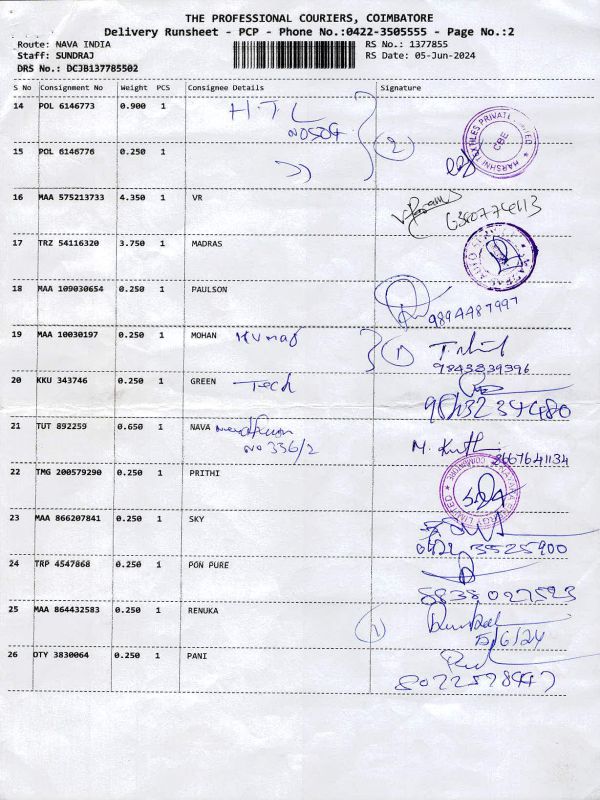 THE PROFESSIONAL COURIERS, COIMBATORE
Delivery Runsheet - PCP - Phone No.:0422-3505555 - Page No.:2
Route: NAVA INDIA RS No.: 1377855
Staff: SUNDRAJ RS Date: 05-Jun-2024
DRS No.: DCJB137785502
S No Consignment No Weight PCS Consignee Details Signature
14 POL 6146773 0.900 1 HTL
NO 504
2
HARSHNI TEXTILES PRIVATE LIMITED
CBE
15 POL 6146776 0.250 1
16 MAA 575213733 4.350 1 VR
17 TRZ 54116320 3.750 1 MADRAS
18 MAA 109030654 0.250 1 PAULSON
9894487997
19 MAA 10030197 0.250 1 MOHAN Kumar 1
9843839396
20 KKU 343746 0.250 1 GREEN Tech
21 TUT 892259 0.650 1 NAVA
NO 336/2
8667641134
22 TMG 200579290 0.250 1 PRITHI
23 MAA 866207841 0.250 1 SKY
0422 3525900
24 TRP 4547868 0.250 1 PON PURE
8838027523
25 MAA 864432583 0.250 1 RENUKA 1
5/6/24
26 DTY 3830064 0.250 1 PANI